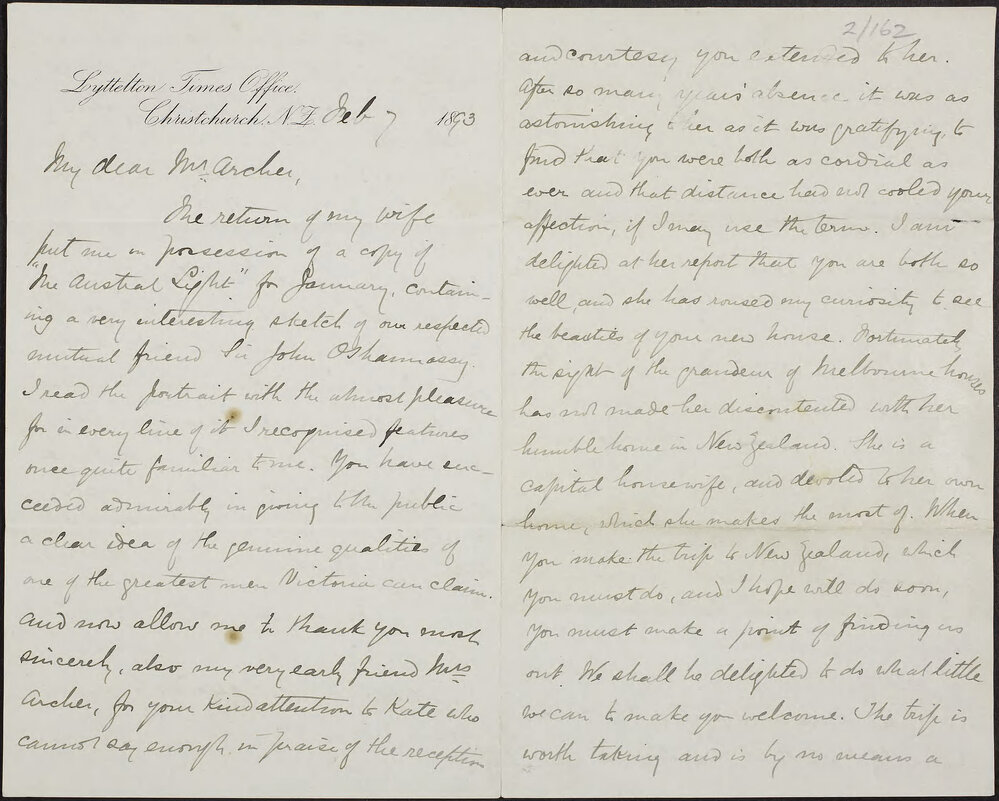 Lyttelton Times Office,
Christchurch, N.Z. Feb 7 1893
My dear Mr. Archer,
The return of my wife
put me in possession of a copy of
"The Austral Light" for January, contain-
ing a very interesting sketch of our respected
mutual friend Sir John O'Shannassy.
I read the portrait with the utmost pleasure
for in every line of it I recognised features
once quite familiar to me. You have suc-
ceeded admirably in giving to the public
a clear idea of the genuine qualities of
one of the greatest men Victoria can claim.
And now allow me to thank you most
sincerely, also my very early friend Mrs
Archer, for your kind attention to Kate who
cannot say enough in praise of the reception
2/162
and courtesy you extended to her.
After so many years' absence it was as
astonishing to her as it was gratifying, to
find that you were both as cordial as
ever and that distance had not cooled your
affection, if I may use the term. I am
delighted at her report that you are both so
well, and she has roused my curiosity to see
the beauties of your new house. Fortunately,
the sight of the grandeur of Melbourne houses
has not made her discontented with her
humble home in New Zealand. She is a
capital housewife, and devoted to her own
home, which she makes the most of. When
you make the trip to New Zealand, which
you must do, and I hope will do soon,
you must make a point of finding us
out. We shall be delighted to do what little
we can to make you welcome. The trip is
worth taking and is by no means a